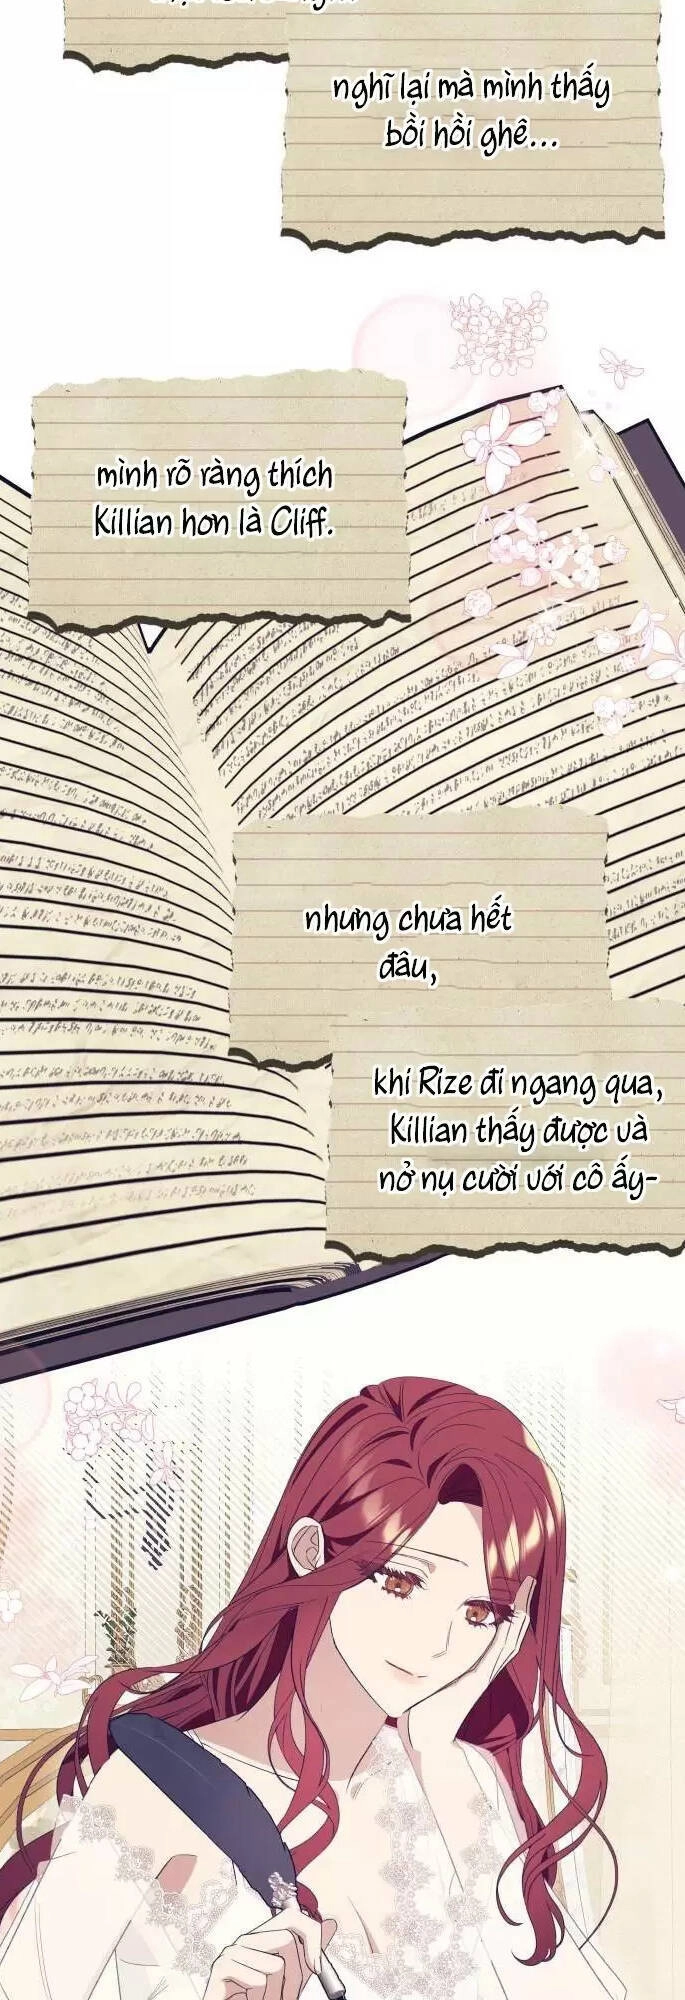 nghĩ lại mà mình thấy
bồi hồi ghê...
mình rõ ràng thích
Killian hơn là Cliff.
nhưng chưa hết
đâu,
khi Rize đi ngang qua,
Killian thấy được và
nở nụ cười với cô ấy-